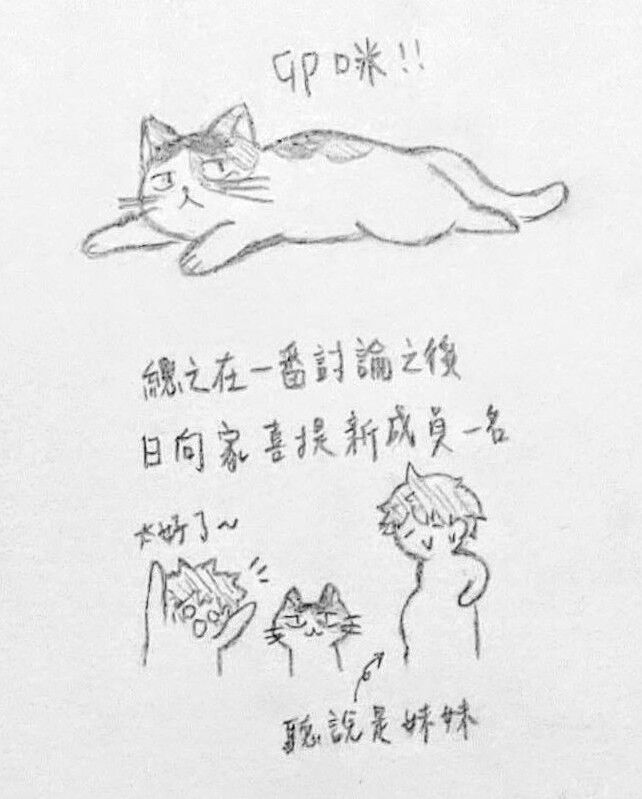 GP咪!!
總之在一番討論之後
日向家喜提新成員一名
太好了~
聽說是妹妹